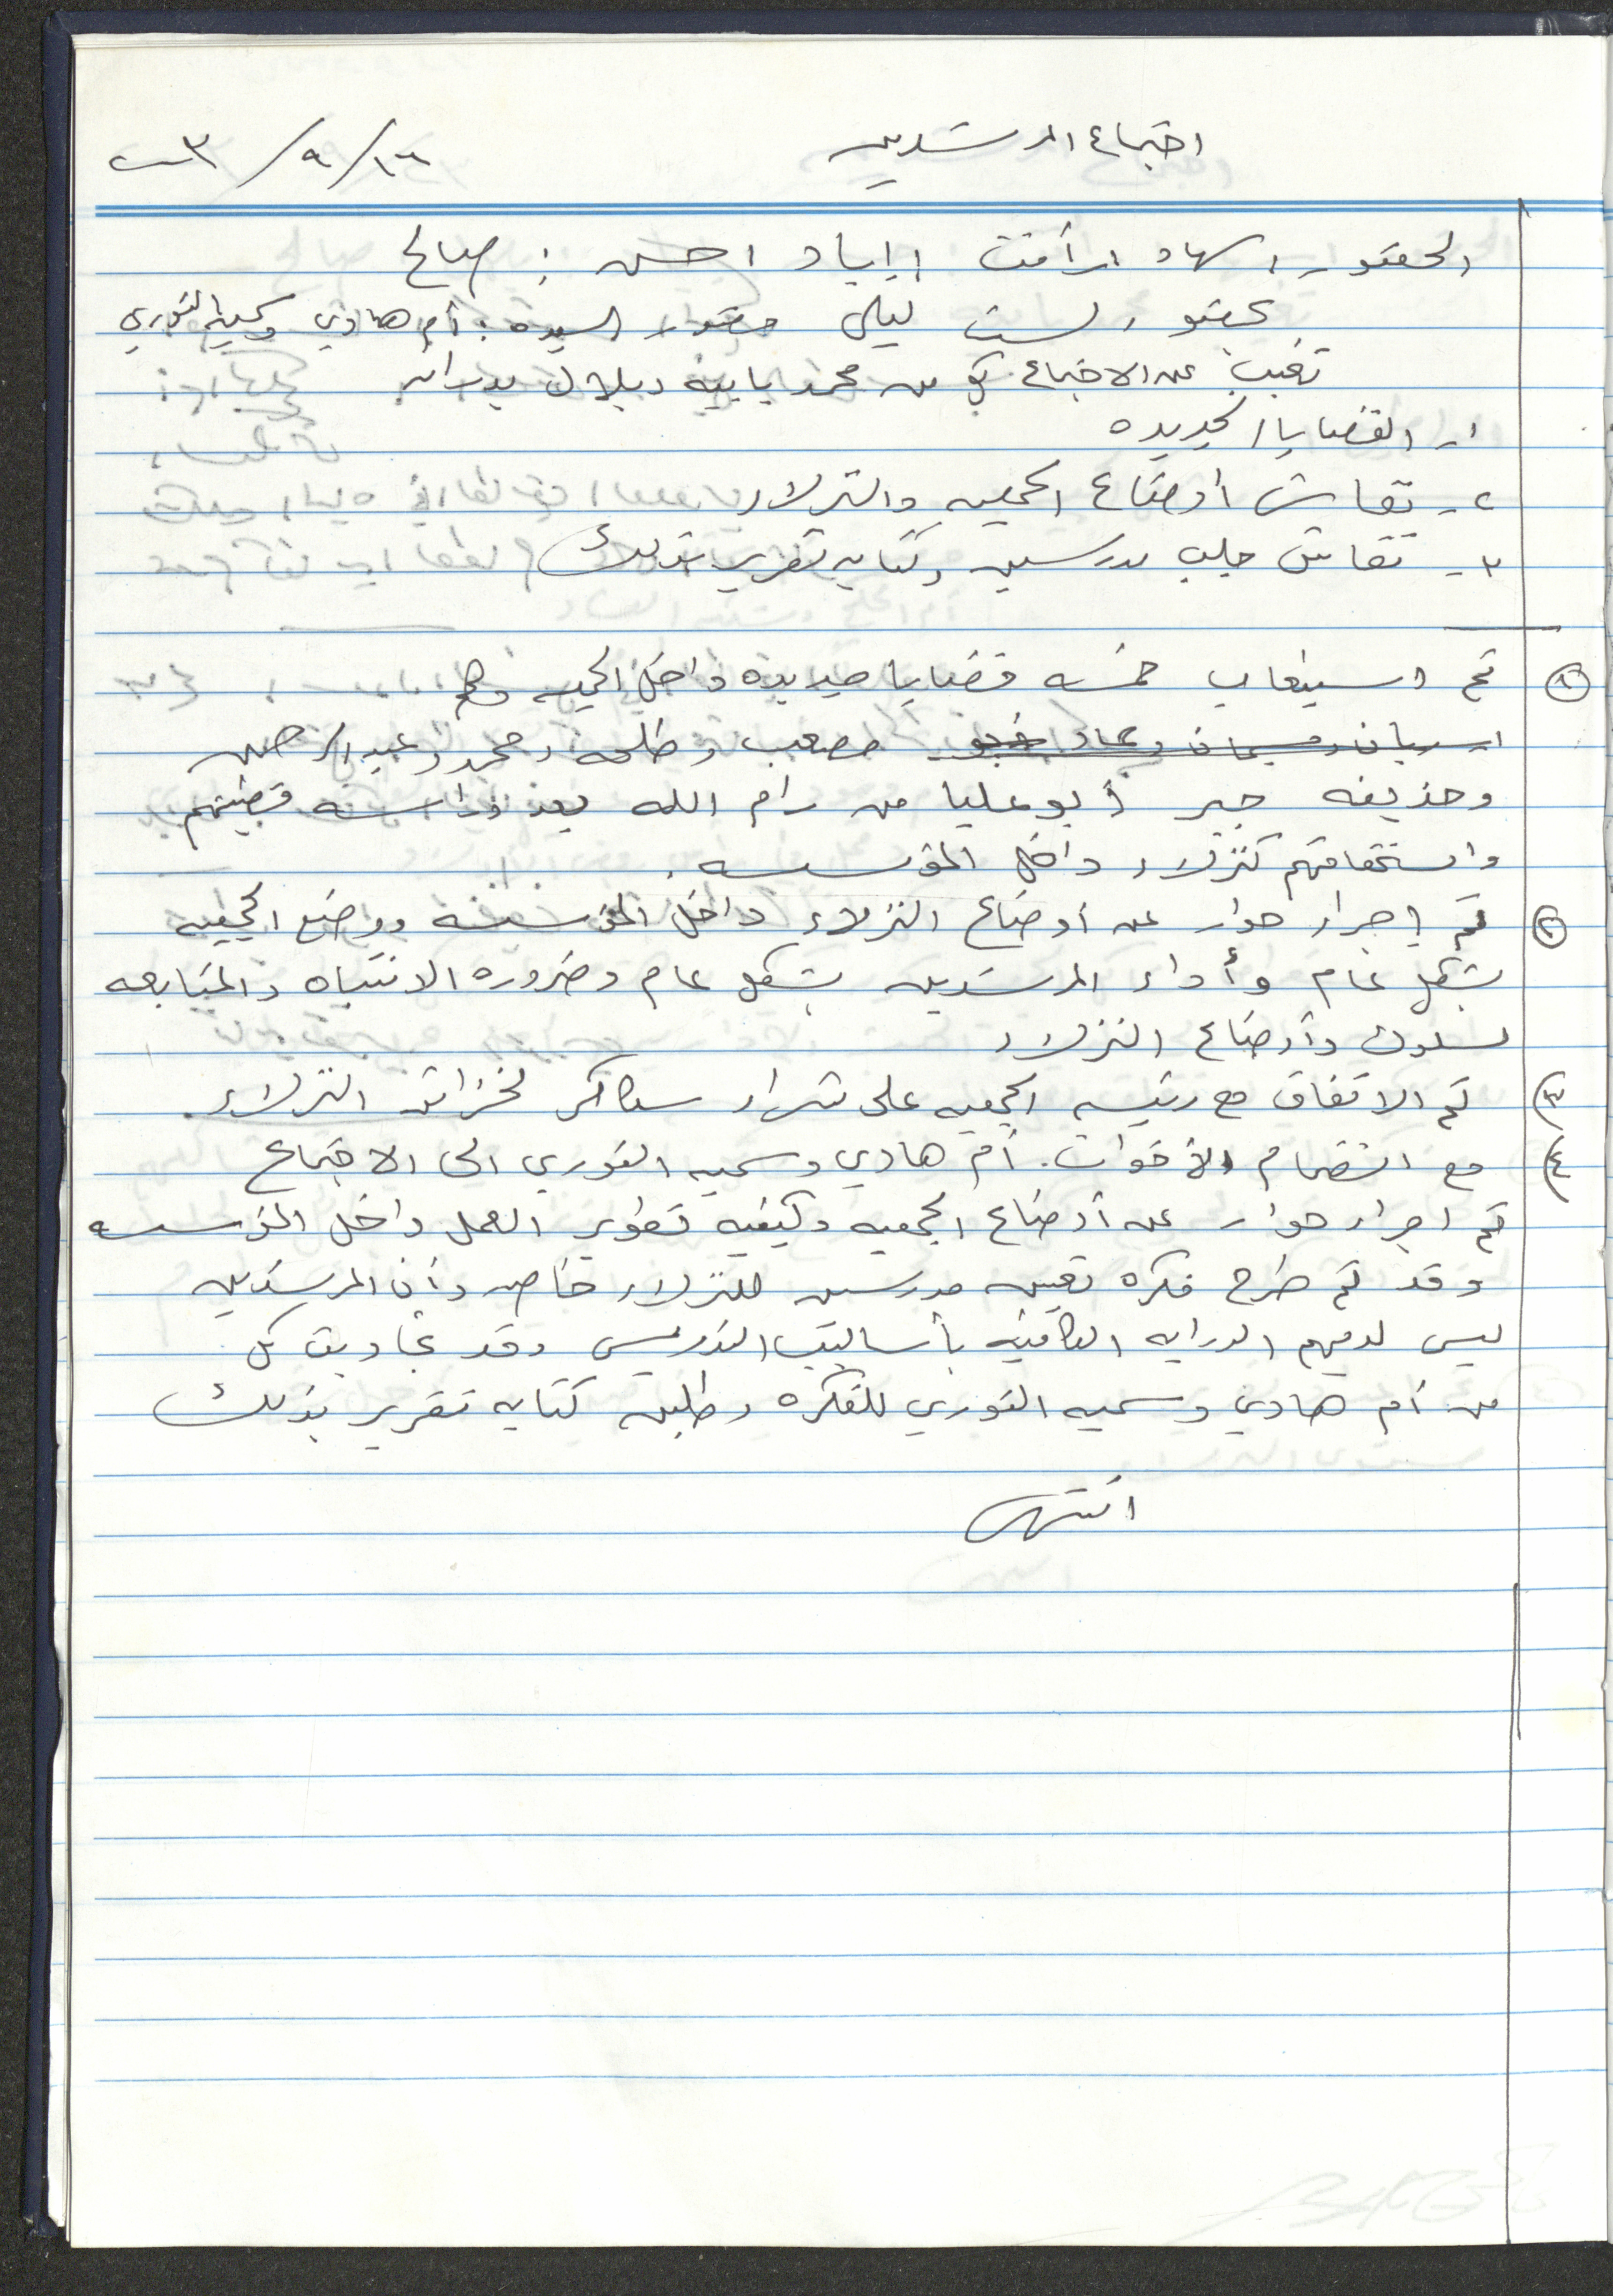 اجتماع المرشدين ١٦/٩/٢٠٠٣
الحضور، سهاد، رأفت، إياد، حسن، صالح
بحضور الست ليلى حضور السيدة: أم هادي وسميه النوري
تغيب عن الاجتماع كل من محمد وبلال بدران
١- القضايا الجديده
٢- نقاش أوضاع الجمعيه والنزلاء
٣- نقاش جلب مدرسين وكتابه تقرير بذلك
١ تم استيعاب خمسه قضايا جديده داخل الجمعيه وهم
مصعب وطلحه ومحمد وعبد الرحمن
وحذيفه جبر أبو عليا من رام الله بعد دراسه قضيتهم
واستحقاقهم كنزلاء داخل المؤسسه.
٢ تم إجراء حوار عن أوضاع النزلاء داخل المؤسسه ووضع الجمعيه
بشكل عام وأداء المرشدين بشكل عام وضروره الانتباه والمتابعه
لسلوك وأوضاع النزلاء
٣) تم الاتفاق مع رئيسه الجمعيه على شراء سكاكر لخزائن النزلاء.
٤) مع انضمام الأخوات. أم هادي وسميه النوري الى الاجتماع
تم اجراء حوار عن أوضاع الجمعيه وكيفيه تطوير العمل داخل المؤسسه
وقد تم طرح فكره تعيين مدرسين للنزلاء خاص وأن المرشدين
ليس لديهم الدرايه الكافيه بأساليب التدريس وقد تجاوبت كل
من أم هادي وسميه النوري للفكره وطلبن كتابه تقرير بذلك
انتهى